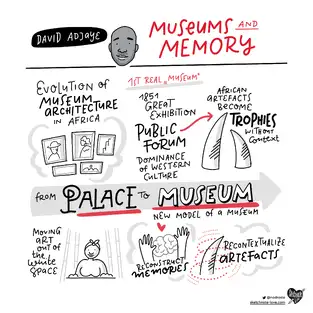 DAVID ADJAYE
MUSEUMS AND
MEMORY
EVOLUTION OF
MUSEUM
ARCHITECTURE
IN AFRICA
1ST REAL „MUSEUM"
1851
GREAT
EXHIBITION
PUBLIC
FORUM
DOMINANCE
OF WESTERN
CULTURE
AFRICAN
ARTEFACTS
BECOME
TROPHIES
WITHOUT
CONTEXT
FROM PALACE TO MUSEUM
NEW MODEL OF A MUSEUM
MOVING
ART
OUT OF
THE
WHITE
SPACE
RECONSTRUCT
MEMORIES
RECONTEXTUALIZE
ARTEFACTS